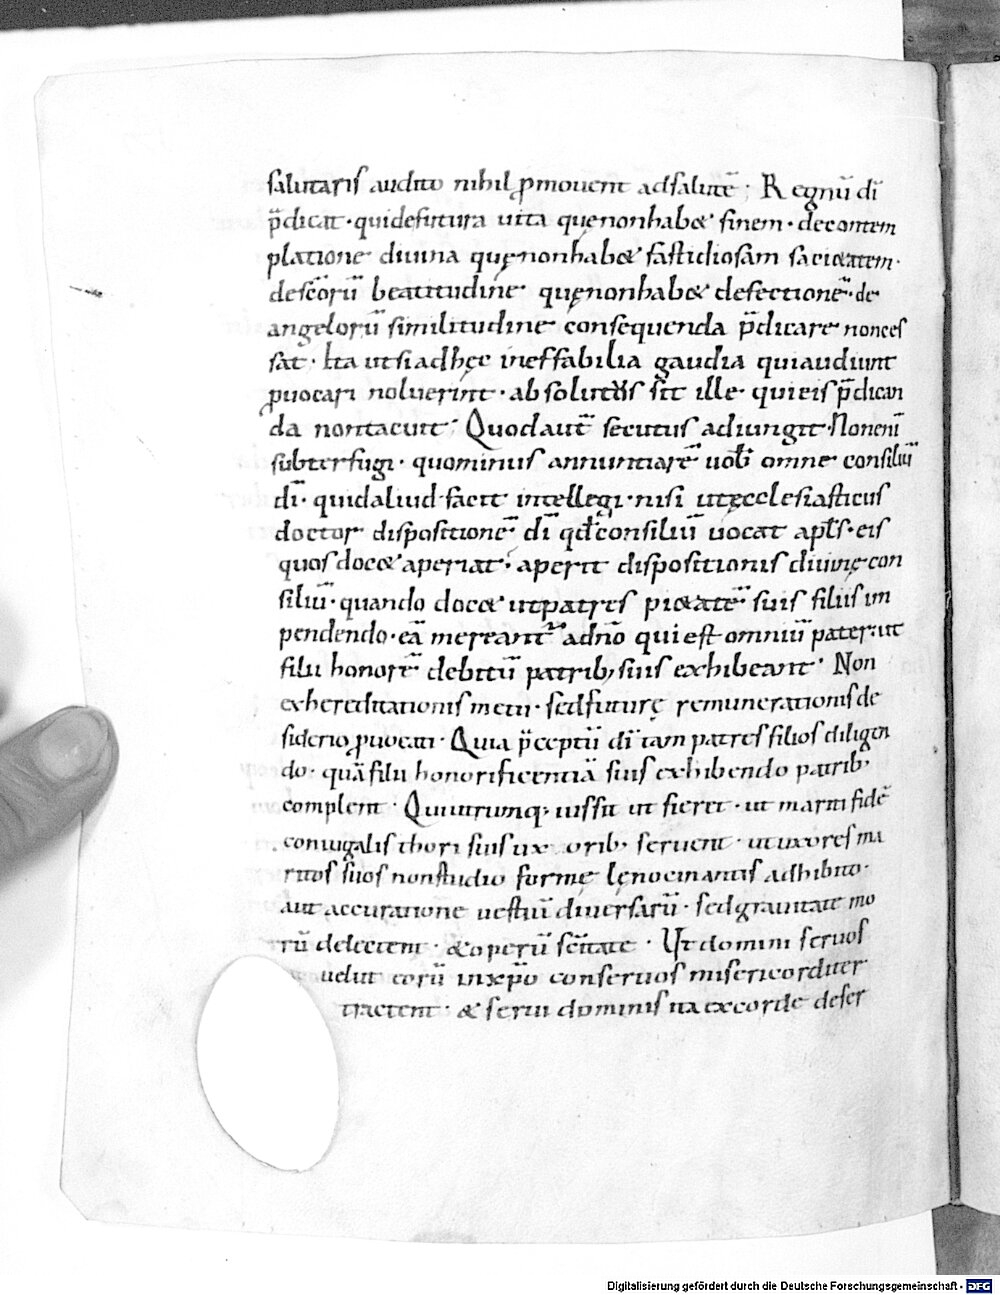 salutaris audito nihil ꝓmouent adsalutē ; Regnū dī
p̄dicat · quidefutura uita quęnonhab& finem · decontem
platione diuina quęnonhab& fastidiosam saci&atem ·
desc̄orū beatitudine quęnonhab& defectionē · de
angelorū similitudine consequenda p̄dicare nonces
sat · Ita utsiadhęc ineffabilia gaudia quiaudiunt
ꝓuocari noluerint · absolutus sit ille · quieis p̄dican
da nontacuit ; Quodaut̄ secutus adiungit · Nonenī
subterfugi · quominus annuntiarē uob̄ omne consiliū
dī · quidaliud facit intellegi · nisi utęcclesiasticus
doctor dispositionē dī qđconsiliū uocat apl̄s · eis
quos doc& aperiat · aperit dispositionis diuinę con
siliū · quando doc& utpatres pi&atē suis filiis im
pendendo · eā mereant̄ adn̄o qui est omniū pater · ut
filii honorē debitū patrib; suis exhibeant · Non
exhereditationis metu · sedfuturę remunerationis de
siderio ꝓuocati · Quia p̄ceptū dī tam patres filios diligen
do · quā filii honorificentiā suis exhibendo patrib;
complent · Quiutrumq; iussit ut fieret · ut mariti fidē
coniugalis thori suis uxorib; seruent · utuxores ma
ritos suos nonstudio formę lęnocinantis adhibito ·
aut accuratione uestiū diuersarū · sedgrauitate mo
rū delectent · &operū sc̄itate · Ut domini seruos
uelut eorū inxp̄o conseruos misericorditer
tractent · & serui dominis ita excorde deser